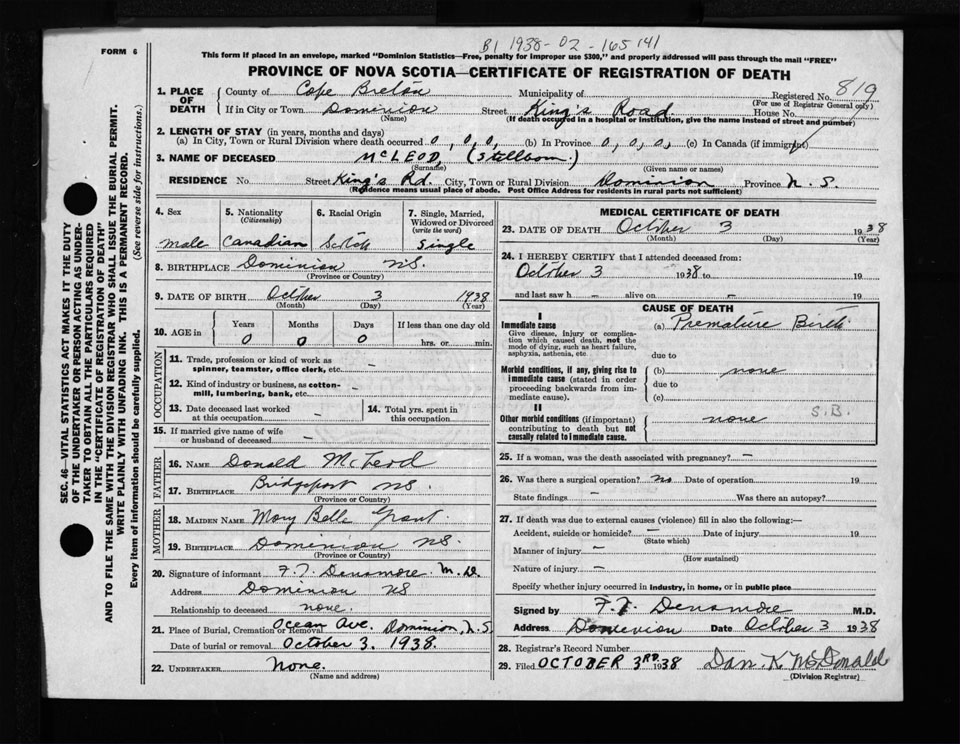 B1 1938-02-165141
FORM 6
This form if placed in an envelope, marked "Dominion Statistics—Free, penalty for improper use $300," and properly addressed will pass through the mail "FREE"
PROVINCE OF NOVA SCOTIA—CERTIFICATE OF REGISTRATION OF DEATH
SEC. 46—VITAL STATISTICS ACT MAKES IT THE DUTY
OF THE UNDERTAKER OR PERSON ACTING AS UNDER-
TAKER TO OBTAIN ALL THE PARTICULARS REQUIRED
IN THE "CERTIFICATE OF REGISTRATION OF DEATH"
AND TO FILE THE SAME WITH THE DIVISION REGISTRAR WHO SHALL ISSUE THE BURIAL PERMIT.
WRITE PLAINLY WITH UNFADING INK. THIS IS A PERMANENT RECORD.
Every item of information should be carefully supplied. (See reverse side for instructions.)
1. PLACE OF DEATH
County of Cape Breton Municipality of Registered No. 819
(For use of Registrar General only)
If in City or Town Dominion Street King's Road House No.
(Name) (If death occurred in a hospital or institution, give the name instead of street and number)
2. LENGTH OF STAY (in years, months and days)
(a) In City, Town or Rural Division where death occurred 0, 0, 0, (b) In Province 0, 0, 0, (c) In Canada (if immigrant)
3. NAME OF DECEASED McLEOD, (Stillborn.)
(Surname) (Given name or names)
RESIDENCE No. Street King's Rd. City, Town or Rural Division Dominion Province N. S.
(Residence means usual place of abode. Post Office Address for residents in rural parts not sufficient)
4. Sex 5. Nationality 6. Racial Origin 7. Single, Married,
(Citizenship) Widowed or Divorced
(write the word)
Male Canadian Scotch Single
8. BIRTHPLACE Dominion NS.
(Province or Country)
9. DATE OF BIRTH October 3 1938
(Month) (Day) (Year)
10. AGE in Years Months Days If less than one day old
0 0 0 hrs. or min.
OCCUPATION
11. Trade, profession or kind of work as
spinner, teamster, office clerk, etc. –
12. Kind of industry or business, as cotton-
mill, lumbering, bank, etc. –
13. Date deceased last worked 14. Total yrs. spent in
at this occupation – this occupation
15. If married give name of wife
or husband of deceased –
FATHER
16. NAME Donald McLeod
17. BIRTHPLACE Bridgeport NS.
(Province or Country)
MOTHER
18. MAIDEN NAME Mary Belle Grant
19. BIRTHPLACE Dominion NS.
(Province or Country)
20. Signature of informant F. T. Densmore M.D.
Address Dominion NS
Relationship to deceased none.
21. Place of Burial, Cremation or Removal Ocean Ave. Dominion, N.S.
Date of burial or removal October 3. 1938.
22. UNDERTAKER None.
(Name and address)
MEDICAL CERTIFICATE OF DEATH
23. DATE OF DEATH October 3 1938
(Month) (Day) (Year)
24. I HEREBY CERTIFY that I attended deceased from:
October 3 1938 to 19
and last saw h – alive on – 19
CAUSE OF DEATH
I
Immediate cause (a) Premature Birth
Give disease, injury or complica-
tion which caused death, not the
mode of dying, such as heart failure,
asphyxia, asthenia, etc. due to
Morbid conditions, if any, giving rise to (b) none
immediate cause (stated in order due to
proceeding backwards from im-
mediate cause). (c)
II S.B.
Other morbid conditions (if important) none
contributing to death but not
causally related to immediate cause.
25. If a woman, was the death associated with pregnancy? –
26. Was there a surgical operation? No Date of operation 19
State findings – Was there an autopsy?
27. If death was due to external causes (violence) fill in also the following:—
Accident, suicide or homicide? – Date of injury 19
(State which)
Manner of injury –
(How sustained)
Nature of injury –
Specify whether injury occurred in industry, in home, or in public place
Signed by F. T. Densmore M.D.
Address Dominion Date October 3 1938
28. Registrar's Record Number
29. Filed OCTOBER 3RD 1938 Dan. K. McDonald
(Division Registrar)